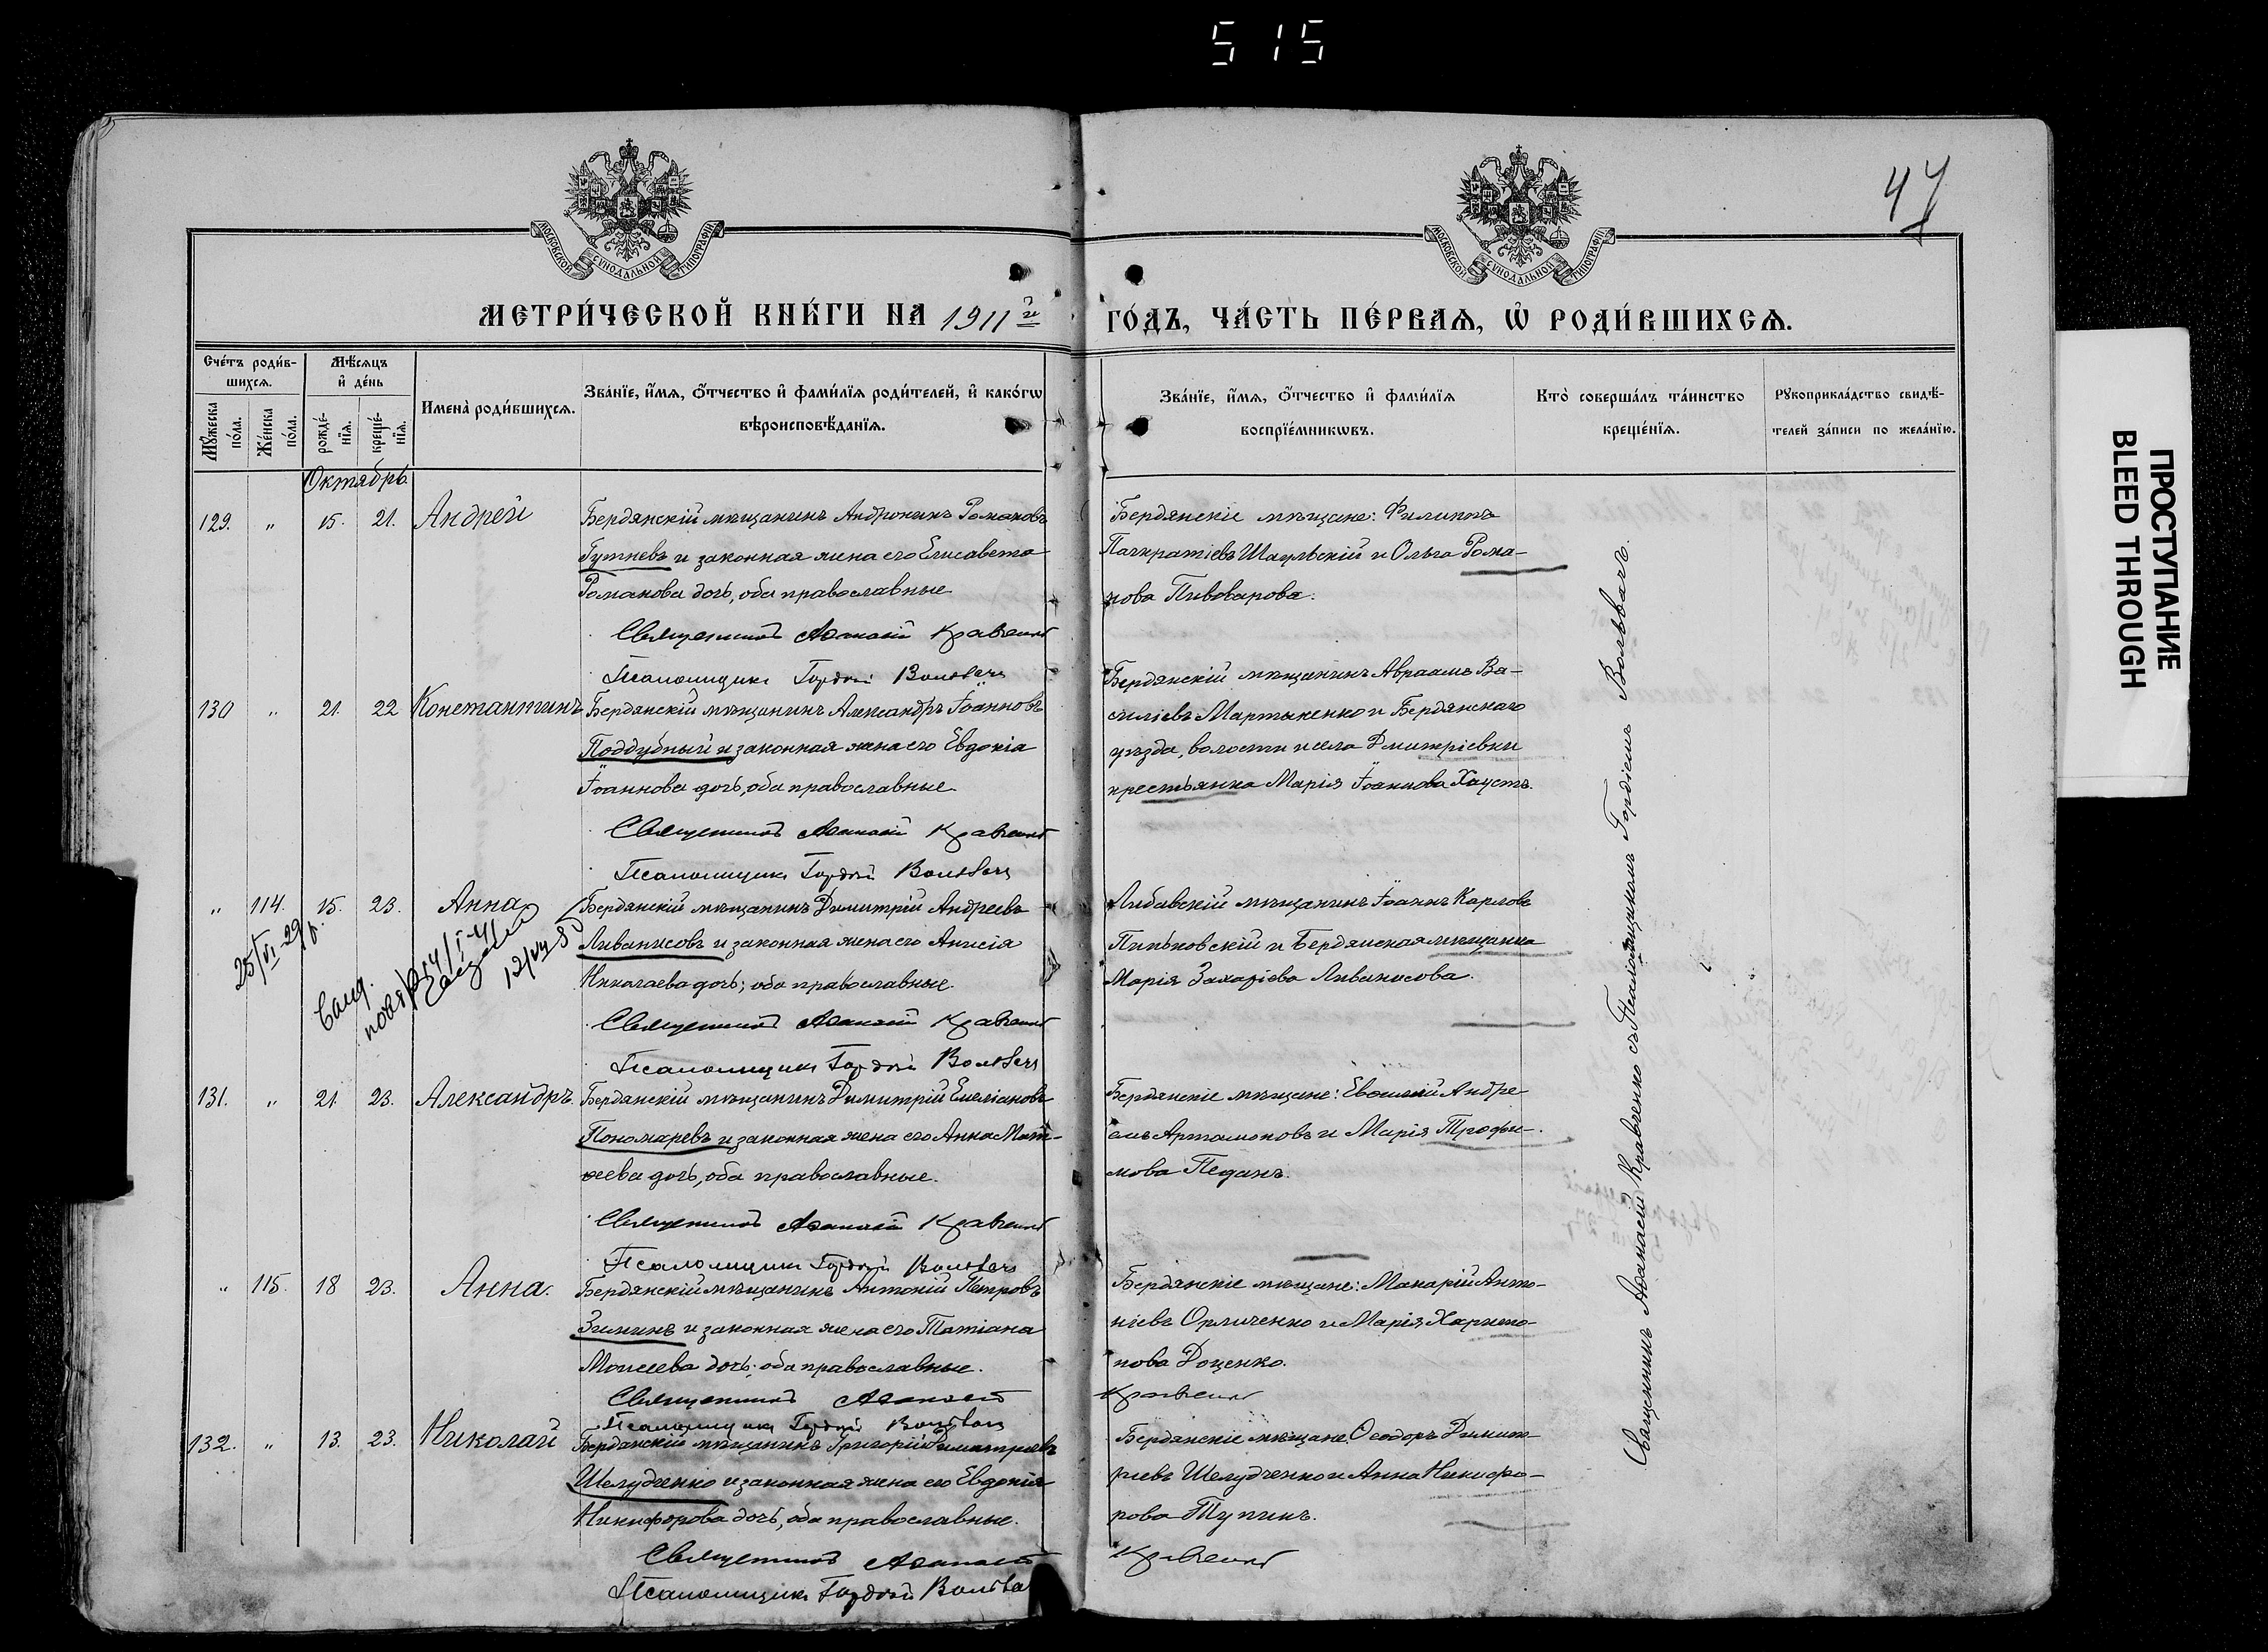 515
47
МОСКОВСКОЙ СУНОДАЛЬНОЙ ТИПОГРАФІИ
МОСКОВСКОЙ СУНОДАЛЬНОЙ ТИПОГРАФІИ
МЕТРИ́ЧЕСКОЙ КНИ́ГИ НА 1911й
ГО́ДЪ, ЧА́СТЬ ПЕ́РВАѦ, Ѽ РОДИ́ВШИХСѦ.
Сче́тъ роди́в-
шихсѧ.
Мѣ́сѧцъ
и҆ де́нь
Мꙋ́жеска
по́ла.
Же́нска
по́ла.
рожде́-
нїѧ.
креще́-
нїѧ.
Имена̀ роди́вшихсѧ.
Зва́нїе, и҆́мѧ, ѻ҆́тчество и҆ фами́лїѧ роди́телей, и҆ како́гѡ
вѣроисповѣ́данїѧ.
Зва́нїе, и҆́мѧ, ѻ҆́тчество и҆ фами́лїѧ
воспрїе́мникѡвъ.
Кто̀ соверша́лъ та́инство
креще́нїѧ.
Рꙋкоприкла́дство свидѣ́-
телей за́писи по жела́нїю.
Октябрь
129. " 15. 21. Андрей
Бердянскій мѣщанинъ Андроникъ Романовъ
Гутневъ и законная жена его Елисавета
Романова дочь, оба православные
Священникъ Аѳанасій Кравченко
Псаломщикъ Гордій Вольвачъ
Бердянскіе мѣщане: Филиппъ
Панкратіевъ Шаульскій и Ольга Рома-
нова Пивоварова.
130 " 21. 22 Константинъ
Бердянскій мѣщанинъ Александръ Іоанновъ
Поддубный и законная жена его Евдокія
Іоаннова дочь, оба православные
Священникъ Аѳанасій Кравченко
Псаломщикъ Гордій Вольвачъ
Бердянскій мѣщанинъ Авраамъ Ва-
силіевъ Мартыненко и Бердянскаго
уѣзда, волости и села Дмитріевки
крестьянка Марія Іоаннова Хаустъ.
" 114. 15. 23. Анна
25/VI-29
12/VII
Бердянскій мѣщанинъ Димитрій Андреевъ
Ливанисовъ и законная жена его Анисія
Николаева дочь; оба православные.
Священникъ Аѳанасій Кравченко
Псаломщикъ Гордій Вольвачъ
Либавскій мѣщанинъ Іоаннъ Карловъ
Пиньковскій и Бердянская мѣщанка
Марія Захаріева Ливанисова.
131. " 21 23. Александръ.
Бердянскій мѣщанинъ Димитрій Емеліановъ
Пономаревъ и законная жена его Анна Мат-
ѳеева дочь, оба православные.
Священникъ Аѳанасій Кравченко
Псаломщикъ Гордій Вольвачъ
Бердянскіе мѣщане: Евѳимій Андре-
евъ Артамоновъ и Марія Трофи-
мова Педанъ.
" 115. 18 23. Анна.
Бердянскій мѣщанинъ Антоній Петровъ
Зиминъ и законная жена его Татіана
Моисеева дочь; оба православные.
Священникъ Аѳанасій
Кравченко
Псаломщикъ Гордій Вольвачъ
Бердянскіе мѣщане: Макарій Анто-
ніевъ Орличенко и Марія Харито-
нова Доценко.
132. " 13. 23. Николай
Бердянскій мѣщанинъ Григорій Димитріевъ
Шелудченко и законная жена его Евдокія
Никифорова дочь, оба православные.
Священникъ Аѳанасій
Кравченко
Псаломщикъ Гордій Вольва
Бердянскіе мѣщане: Ѳеодоръ Димит-
ріевъ Шелудченко и Анна Никифо-
рова Тупикъ.
Священникъ Аѳанасій Кравченко съ Псаломщикомъ Гордіемъ Вольвачъ.
ПРОСТУПАНИЕ
BLEED THROUGH